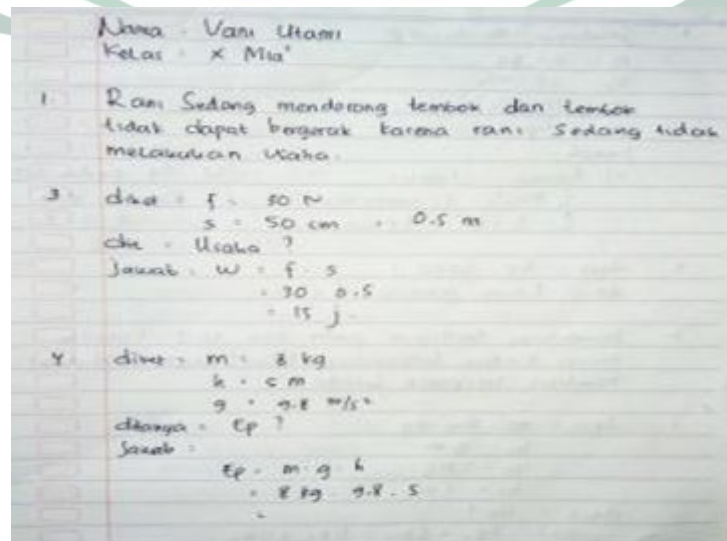 Nama : Vani Utami
Kelas : X Mia¹
1 Rani Sedang mendorong tembok dan tembok
tidak dapat bergerak karena rani Sedang tidak
melakukan Usaha.
3 diket = f = 30 N
s = 50 cm = 0.5 m
dit = Usaha ?
Jawab : W = f . s
= 30 . 0.5
= 15 j
4 diket = m = 8 kg
h = 5 m
g = 9.8 m/s²
ditanya = Ep ?
Jawab =
Ep = m . g . h
= 8 kg . 9.8 . 5
=